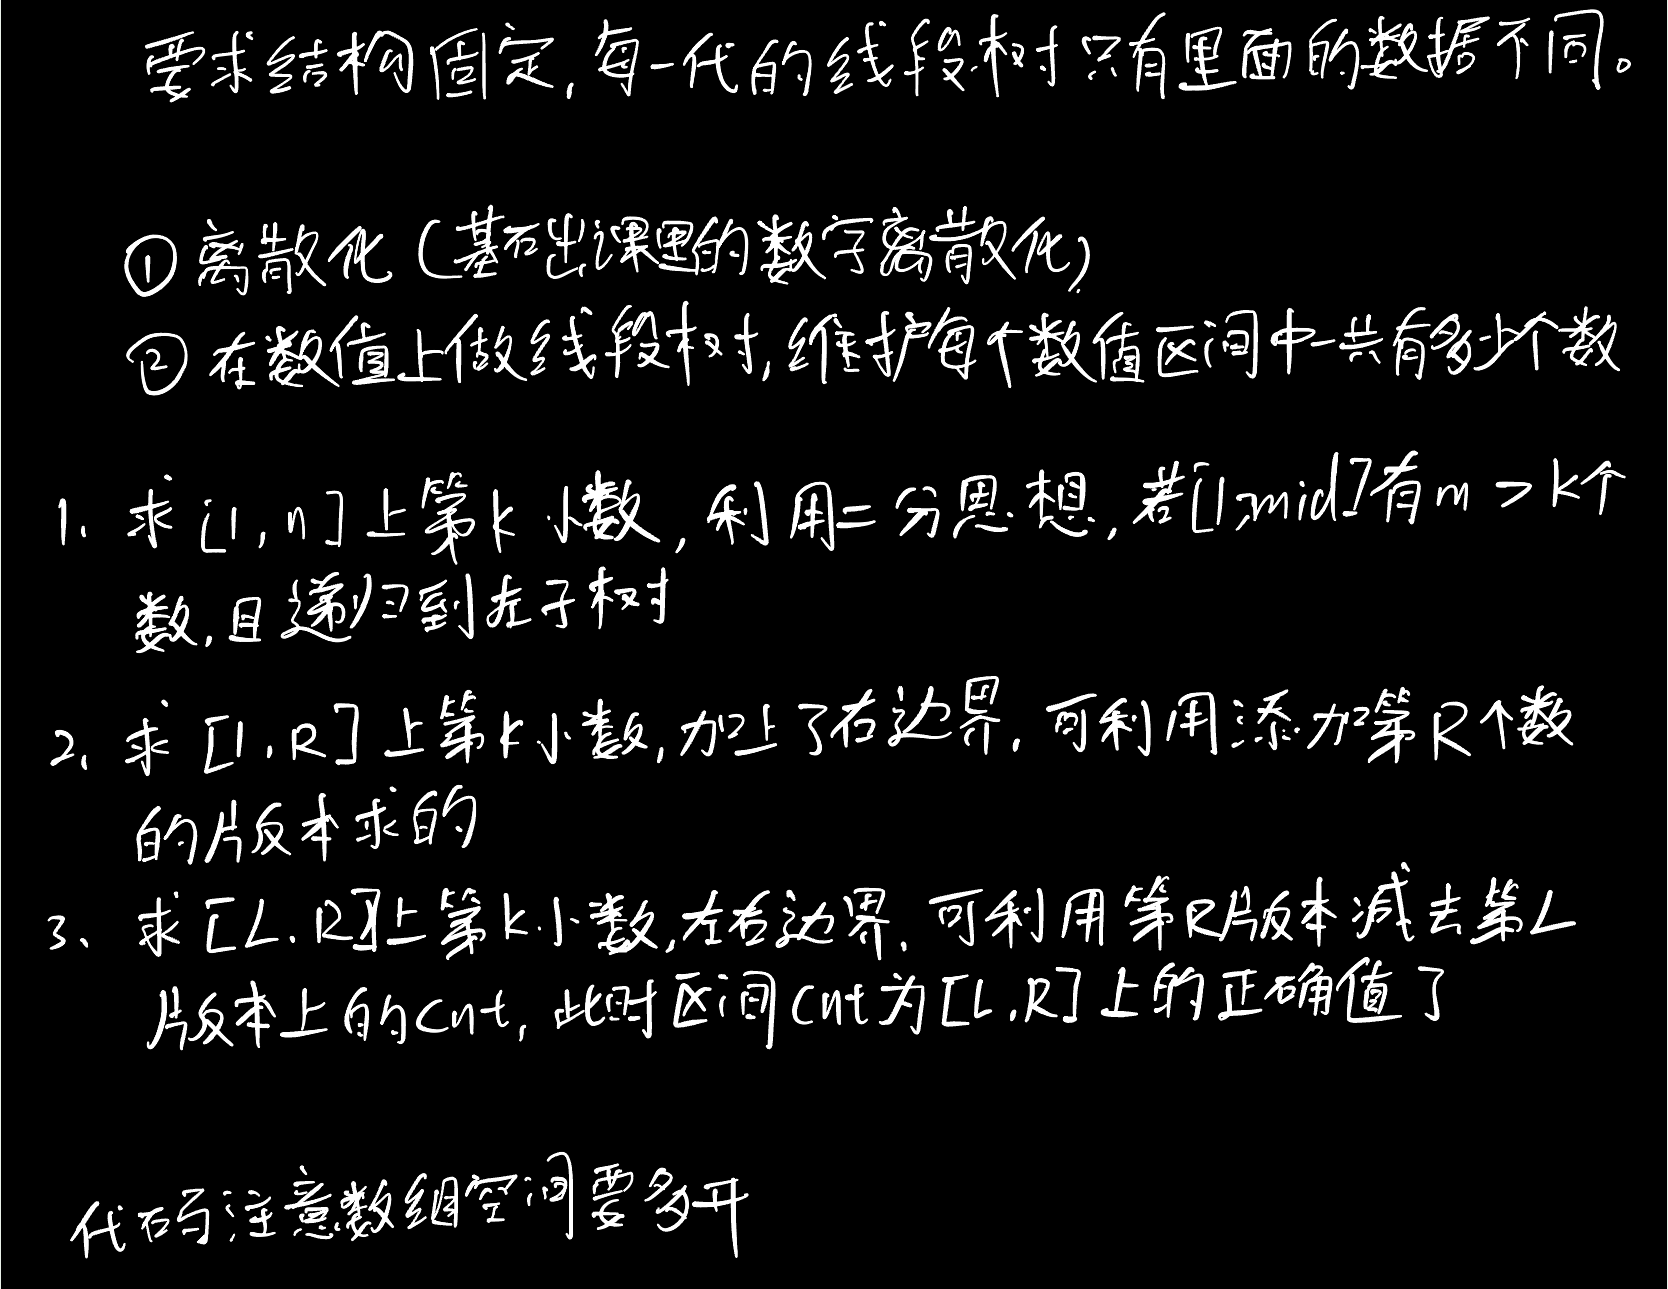 要求结构固定,每一代的线段树只有里面的数据不同。
① 离散化(基础课里的数字离散化)
② 在数值上做线段树,维护每个数值区间中一共有多少个数
1. 求[1,n]上第k小数,利用二分思想,若[1,mid]有m>k个
数,且递归到左子树
2、求[1,R]上第k小数,加上了右边界,可利用添加第R个数
的版本求的
3、求[L,R]上第k小数,左右边界,可利用第R版本减去第L
版本上的cnt,此时区间cnt为[L,R]上的正确值了
代码注意数组空间要多开